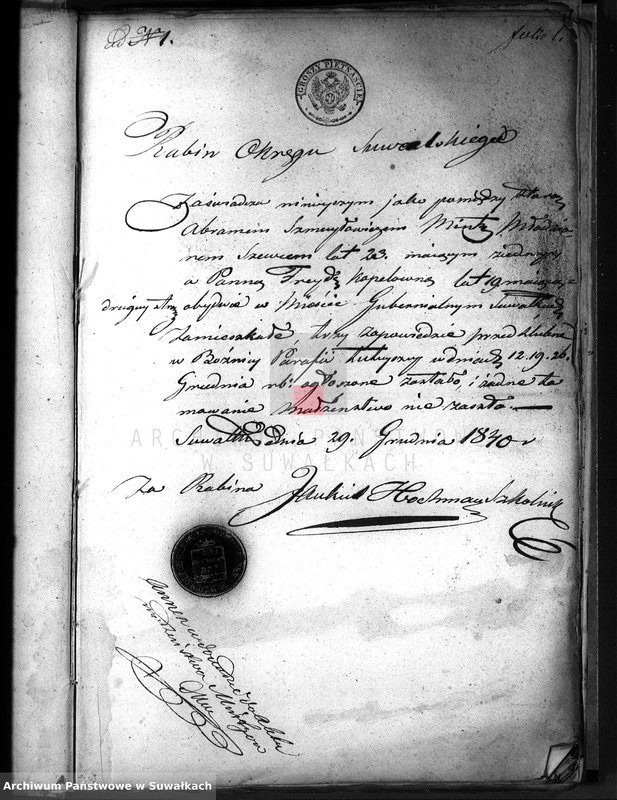 ad N 1.
folio 1.
GROSZY PIETNAŚCIE
Rabin Okręgu Suwalskiego
Zaświadcza ninieyszym jako pomiędzy Staroz
Abramem Szmuyłowiczem Mintz Młodzia
nem Szewcem lat 23. maiącym z iedney
a Panną Freydą Kapelowną lat 19 maiącą z
drugiey strony obydwie w Mieście Gubernialnym Suwałkach
Zamieszkałe, trzy zapowiedzie przedślubne
w Bożnicy Parafii tuteyszey w dniach 12. 19. 26.
Grudnia rb. ogłoszone zostało, i żadne ta
mowanie Małżeństwo nie zaszło.
Suwałki dnia 29. Grudnia 1840 r
Za Rabina Jankiel Hochman Szkolnik
ARCHIWUM PAŃSTWOWE
W SUWAŁKACH
Małżeństwa
Archiwum Państwowe w Suwałkach